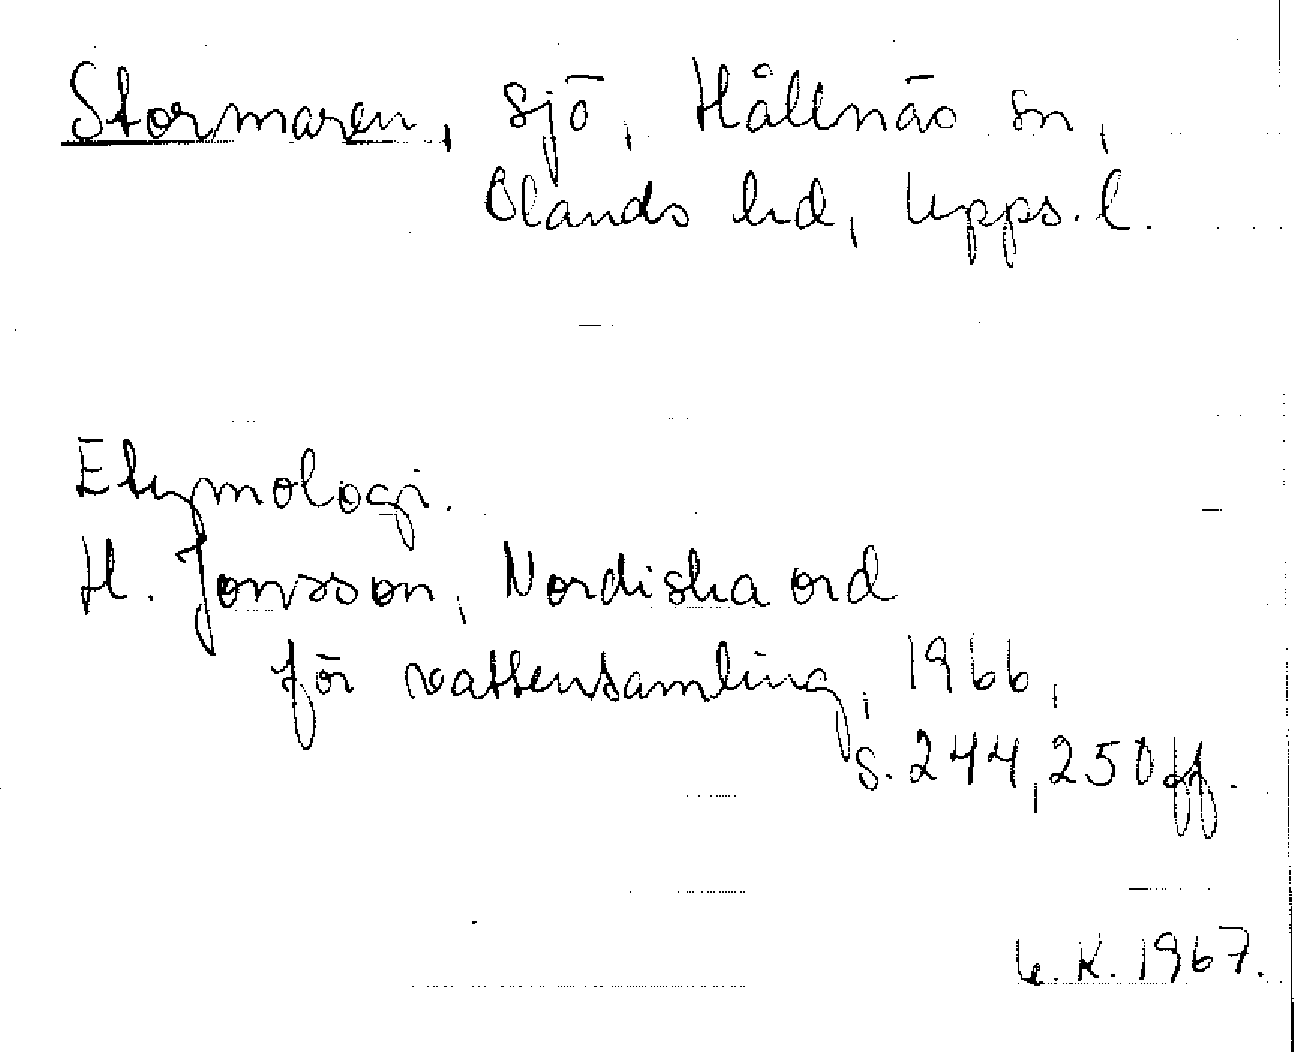 Stormaren, sjö, Hållnäs sn,
Olands hd, Upps. l.
Etymologi.
H. Jonsson, Nordiska ord
för vattensamling, 1966,
s. 244, 250 ff.
U.K. 1967.